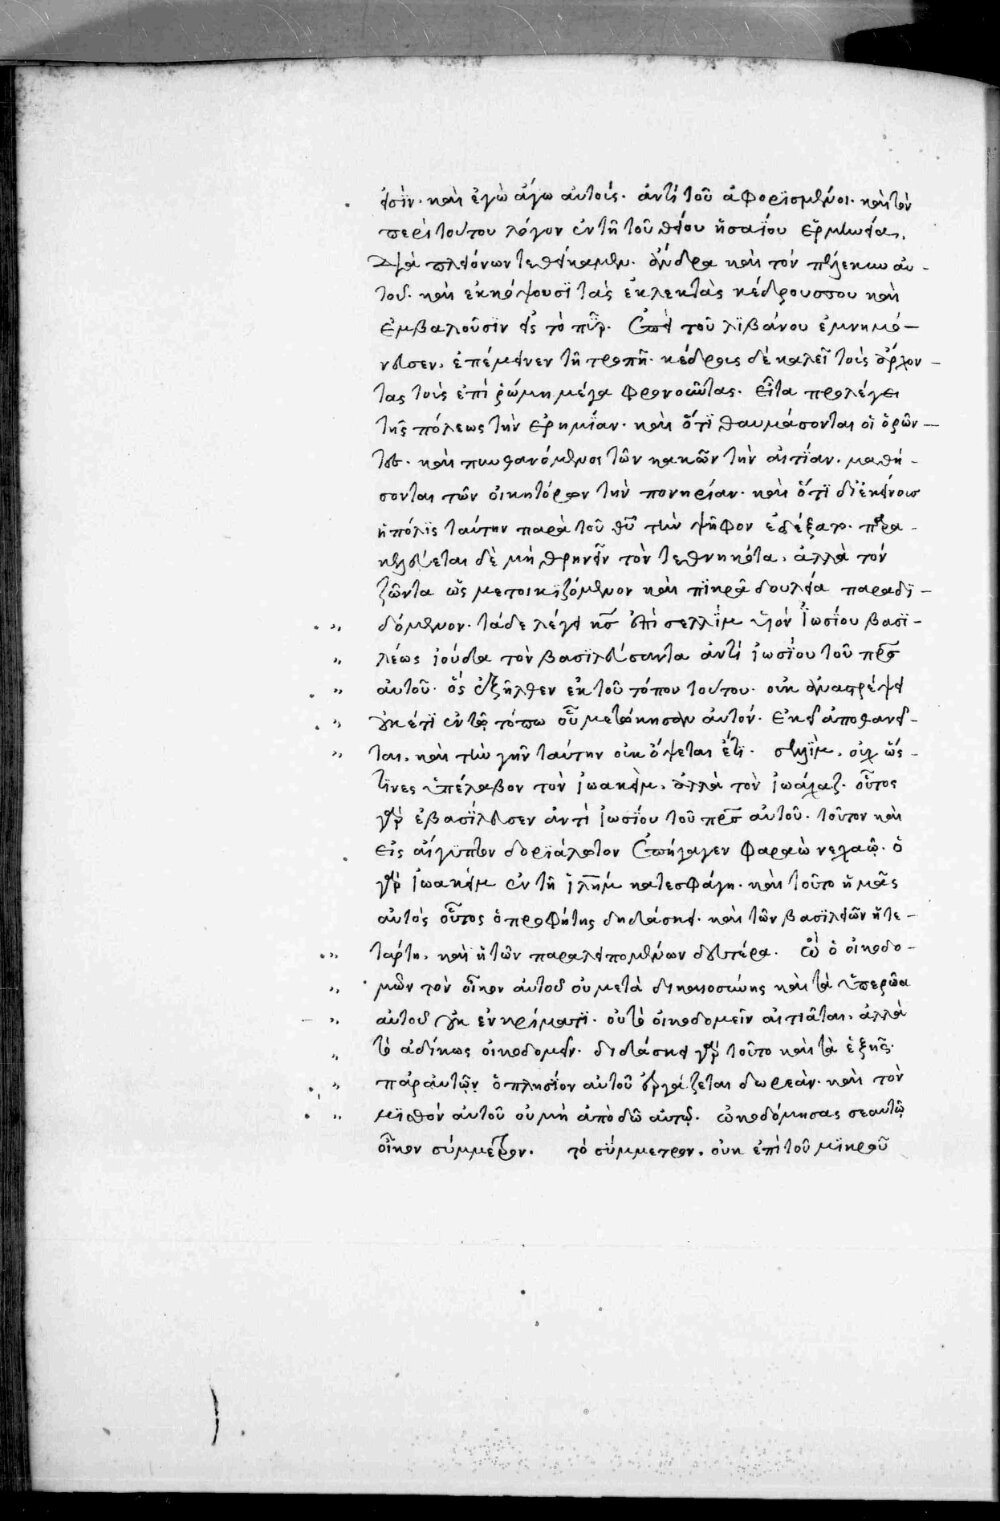 εἰσὶν· καὶ ἐγὼ ἄγω αὐτοὺς· ἀντὶ τοῦ ἀφορϊσμένοι· καὶ τὸν
περὶ τούτου λόγον ἐν τῆ τοῦ θείου ἡσαΐου ἑρμηνεία,
διὰ πλειόνων τεθείκαμεν. ἄνδρα καὶ τὸν πέλεκυν αὐ-
τοῦ· καὶ ἐκκόψουσϊ τὰς ἐκλεκτὰς κέδρους σου καὶ
ἐμβαλοῦσϊν εἰς τὸ πῦρ. ἐπεὶ τοῦ λϊβάνου ἐμνημό-
νευσεν, ἐπέμεινεν τῆ τροπῆ· κέδρους δὲ καλεῖ τοὺς ἄρχον-
τας τοὺς ἐπὶ ῥώμη μέγα φρονοῦντας. εἶτα προλέγει
τῆς πόλεως τὴν ἐρημΐαν· καὶ ὅτϊ θαυμάσονται οἱ ὁρῶν-
τες· καὶ πυνθανόμενοι τῶν κακῶν τὴν αἰτΐαν, μαθή-
σονται τῶν οἰκητόρων τὴν πονηρίαν· καὶ ὅτϊ δι' ἐκείνους
ἡ πόλϊς ταύτην παρὰ τοῦ θυ τὴν ψῆφον ἐδέξατο. παρα-
κελεύεται δὲ μὴ θρηνεῖν τὸν τεθνηκότα, ἀλλὰ τὸν
ζῶντα ὡς μετοικϊζόμενον καὶ πϊκρᾶ δουλεία παραδϊ-
δόμενον. τάδε λέγει κς ἐπὶ σελλὴμ υἱὸν ἰωσίου βασϊ-
λέως ἰούδα τὸν βασϊλεύσαντα ἀντὶ ἰωσΐου τοῦ πρς
αὐτοῦ· ὃς ἐξῆλθεν ἐκ τοῦ τόπου τούτου· οὐκ ἀναστρέψει
ἐκεῖ ἔτϊ ἐν τῶ τόπω οὗ μετώκησαν αὐτόν· ἐκεῖ ἀποθανεῖ-
ται, καὶ τὴν γῆν ταύτην οὐκ ὄψεται ἔτϊ. σελλὴμ, οὐχ ὥς
τϊνες ὑπέλαβον τὸν ἰωακεὶμ, ἀλλὰ τὸν ἰωάχαζ· οὗτος
γὰρ ἐβασΐλευσεν ἀντὶ ἰωσΐου τοῦ πρς αὐτοῦ. τοῦτον καὶ
εἰς αἴγυπτον δορϊάλωτον ἀπήγαγεν φαραὼ νεχαώ. ὁ
γὰρ ἰωακεὶμ ἐν τῆ ἱλημ κατεσφάγη. καὶ τοῦτο ἡμᾶς
αὐτὸς οὗτος ὁ προφήτης διδάσκει· καὶ τῶν βασϊλειῶν ἡ τε-
τάρτη, καὶ ἡ τῶν παραλειπομένων δευτέρα. ὦ ὁ οἰκοδο-
μῶν τὸν οἶκον αὐτοῦ οὐ μετὰ δικαιοσύνης καὶ τὰ ὑπερῶα
αὐτοῦ οὐκ ἐν κρίματϊ· οὐ τὸ οἰκοδομεῖν αἰτιᾶται, ἀλλὰ
τὸ ἀδίκως οἰκοδομεῖν. διδάσκει γὰρ τοῦτο καὶ τὰ ἑξῆς·
παρ' αὐτῶν ὁ πλησίον αὐτοῦ ἐργάζεται δωρεὰν· καὶ τὸν
μϊσθὸν αὐτοῦ οὐ μὴ ἀποδῶ αὐτῷ. ὠκοδόμησας σεαυτῶ
οἶκον σύμμετρον. τὸ σύμμετρον, οὐκ ἐπὶ τοῦ μϊκροῦ